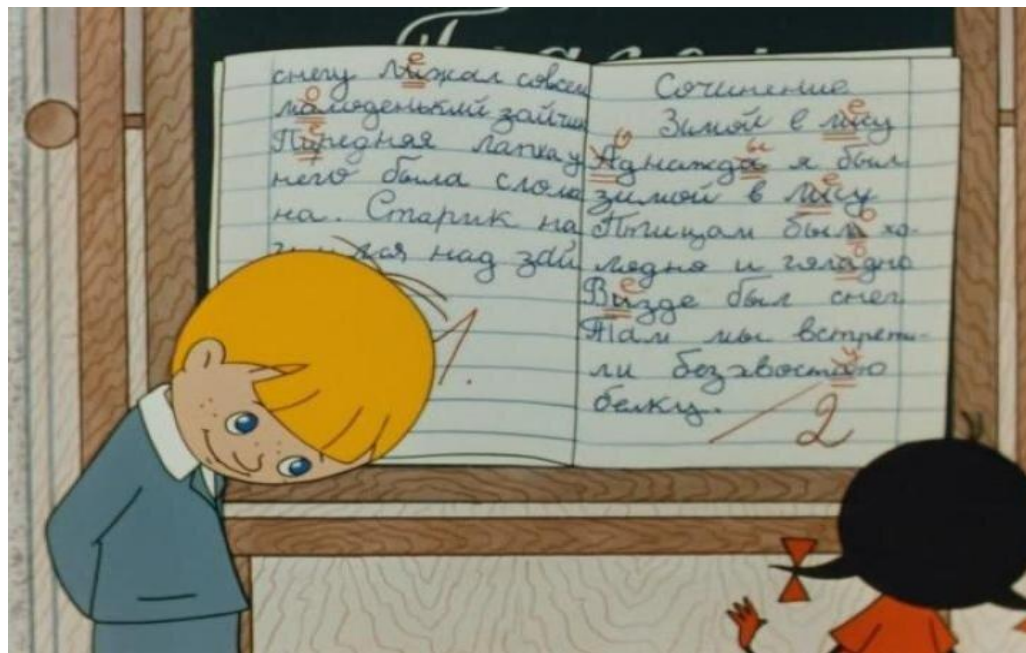 снегу лижал совсем
малоденький зайчик
Пиредняя лапка у
него была слома
на. Старик на
над зай
1.
Сочинение
Зимой в лису
Аднажда я был
зимой в лису
Птицам была хо-
лодно и голадно
Визде был снег
Там мы встрети-
ли безхвостаю
белку.
2